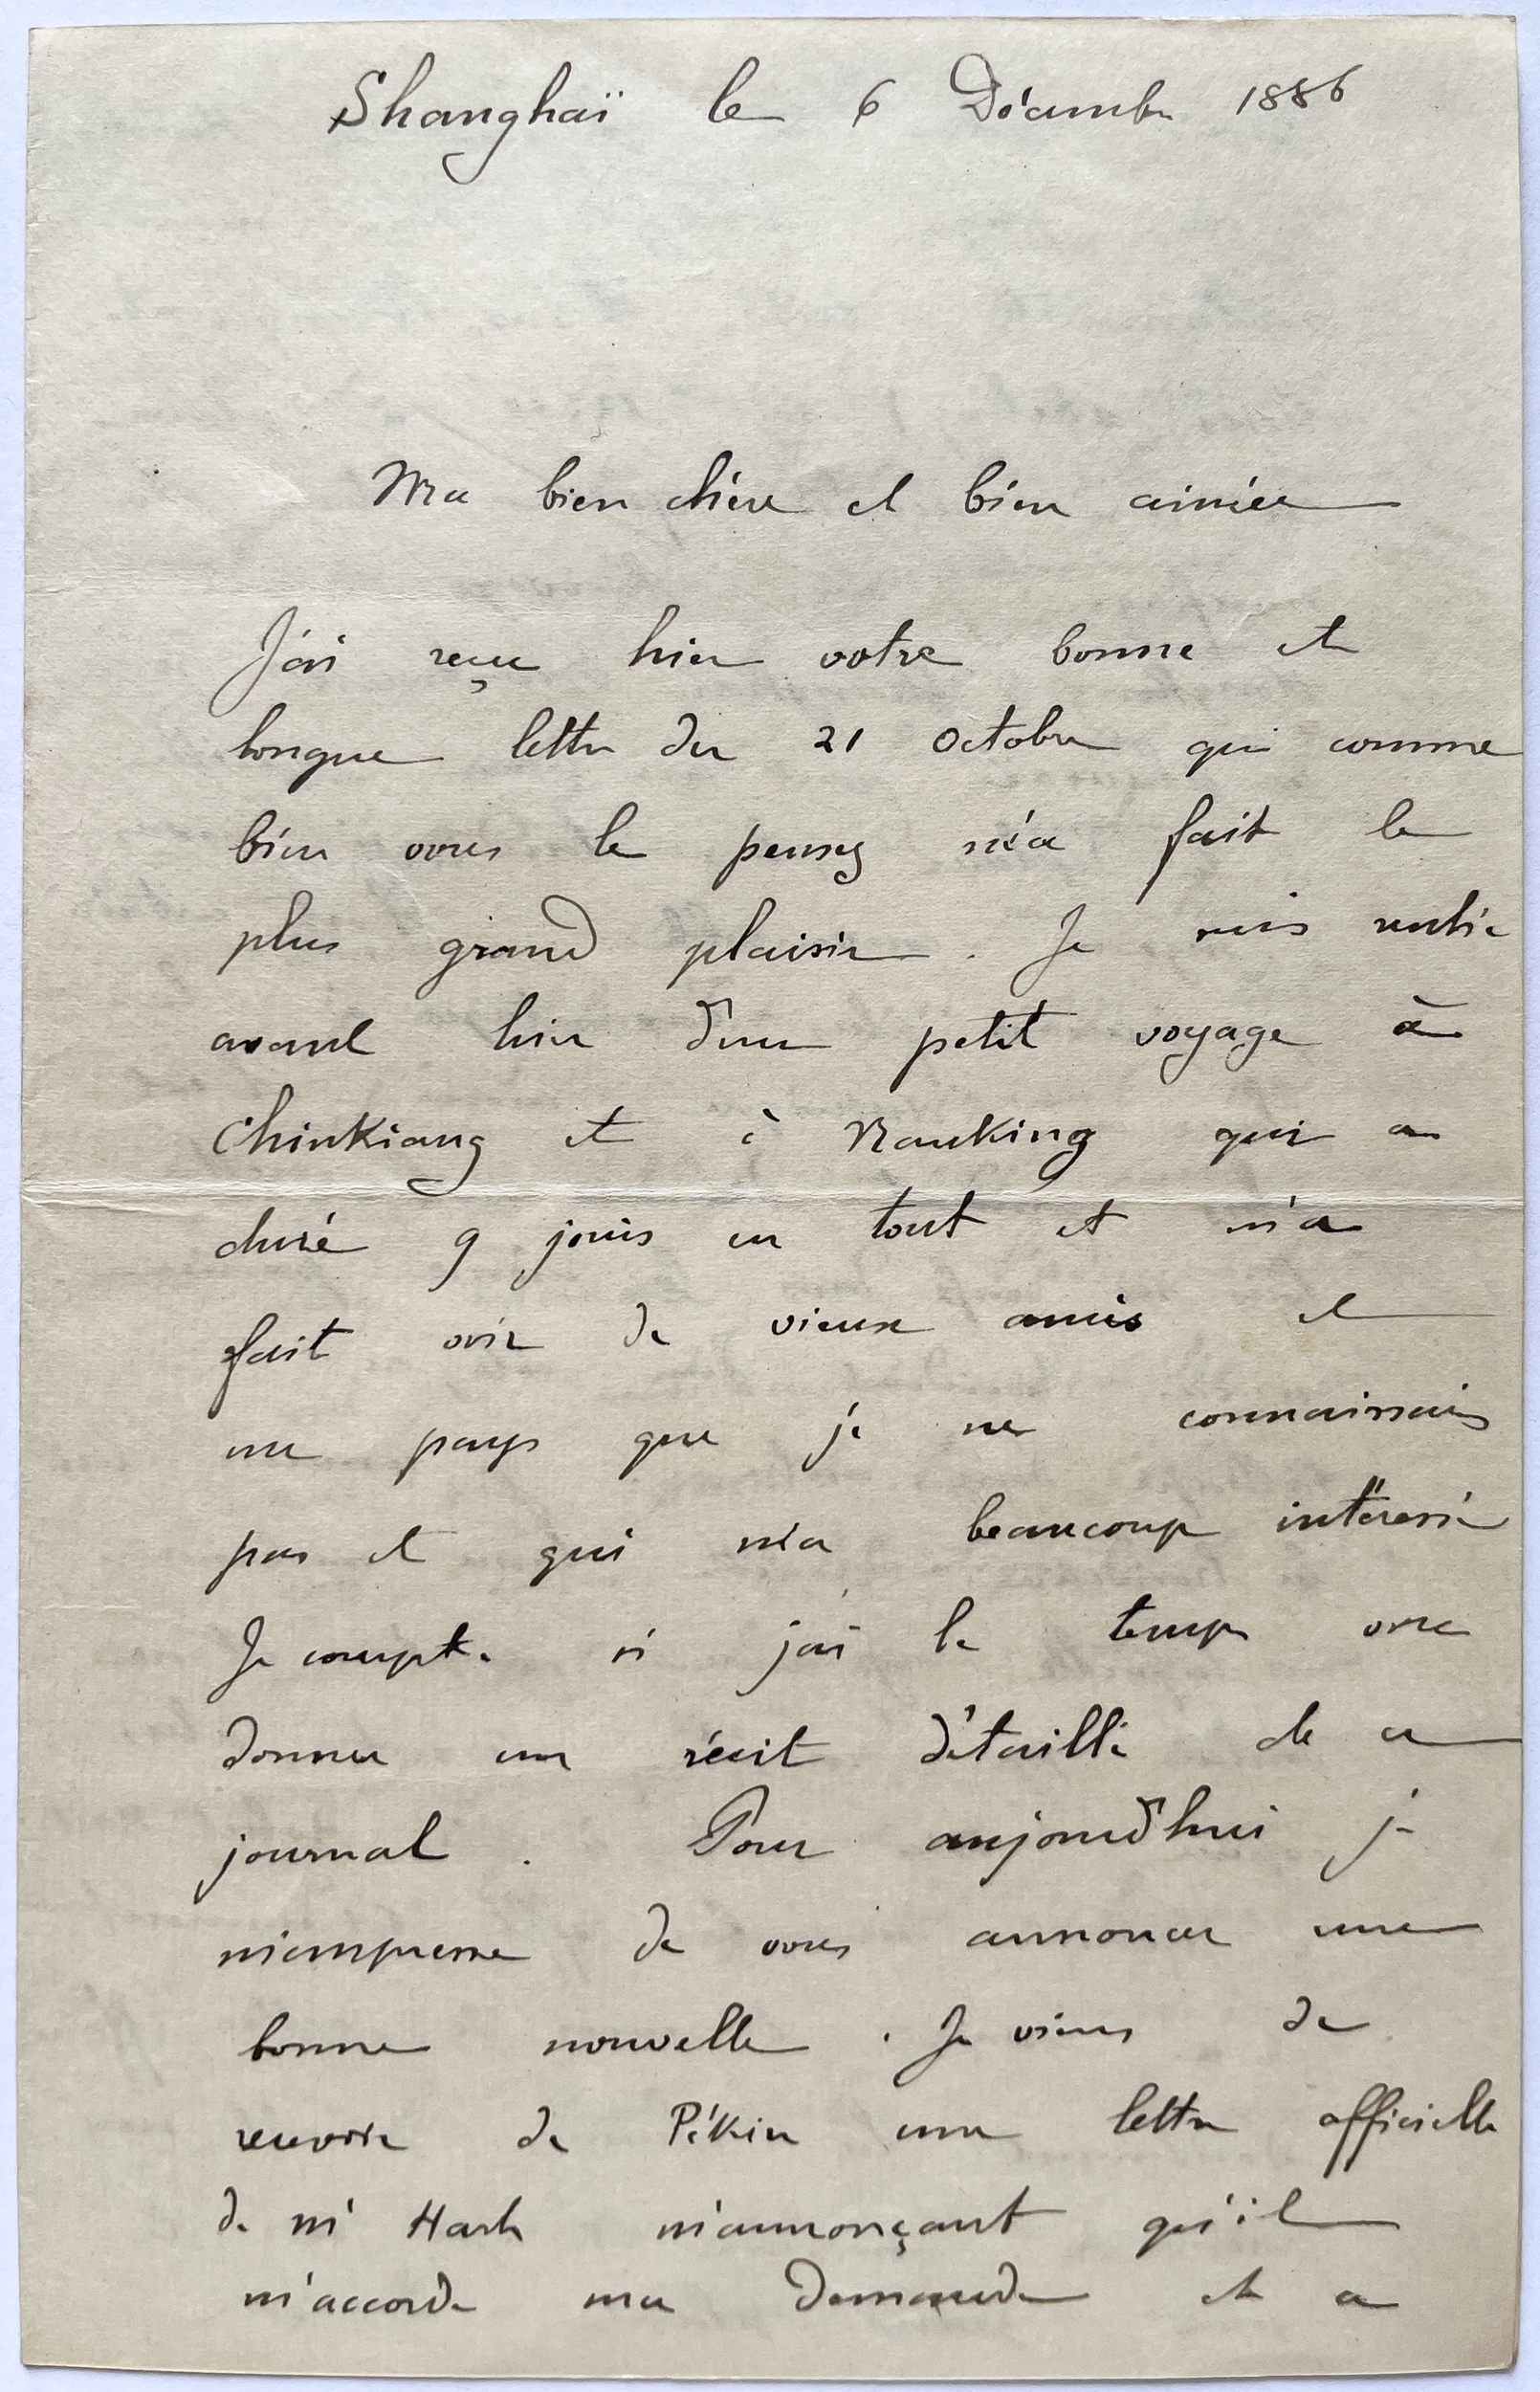 Shanghaï le 6 Décembre 1886
Ma bien chère et bien aimée
J'ai reçu hier votre bonne et
longue lettre du 21 Octobre qui comme
bien vous le pensez m'a fait le
plus grand plaisir. Je suis rentré
avant hier d'un petit voyage à
Chinkiang et à Nanking qui a
duré 9 jours en tout et m'a
fait voir de vieux amis et
un pays que je ne connaissais
pas et qui m'a beaucoup intéressé
Je compte si j'ai le temps vous
donner un récit détaillé de ce
journal. Pour aujourd'hui je
m'empresse de vous annoncer une
bonne nouvelle. Je viens de
recevoir de Pékin une lettre officielle
de Mr m'annonçant qu'il
m'accorde ma demande et a